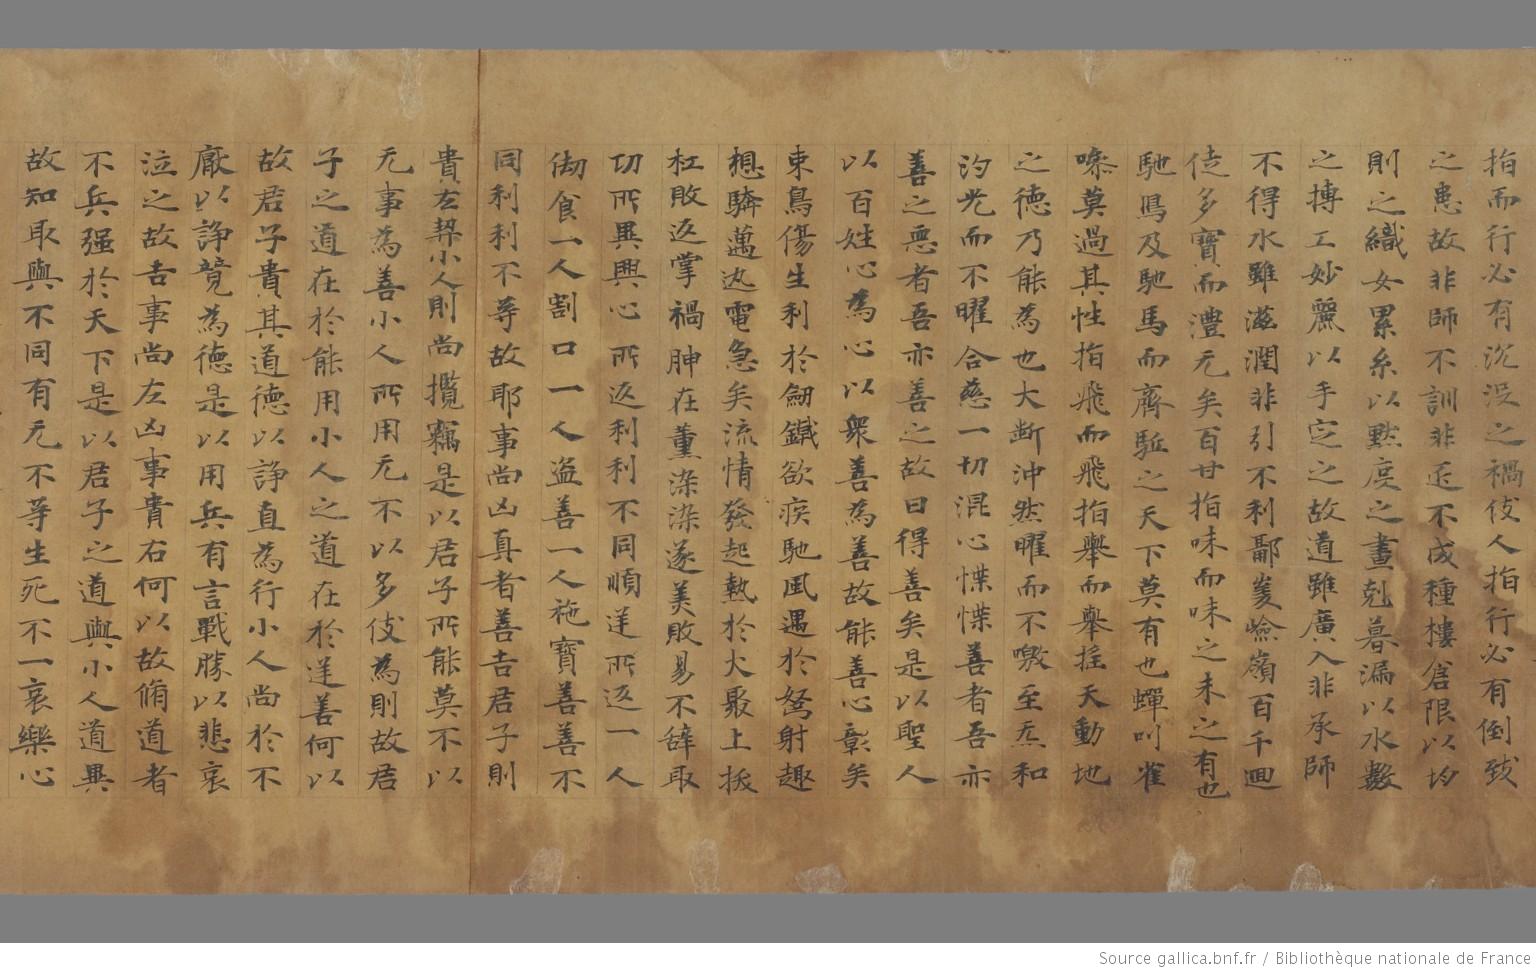 指而行必有沉没之禍伎人指行必有倒致
之患故非師不訓非逓不成種樓倉限以均
則之織女累糸以黙度之晝剋暮漏以水數
之摶工妙麗以手定之故道雖廣入非承師
不得水雖滋潤非引不利鄢峩嶮嶺百千迴
徒多寶而澧无矣百甘指味而味之未之有也
馳馬及馳馬而齊駈之天下莫有也蟬叫雀
喿莫過其性指飛而飛指舉而舉揺天動地
之徳乃能為也大断沖然曜而不曒至炁和
汋光而不曜合慈一切混心惵惵善者吾亦
善之悪者吾亦善之故曰得善矣是以聖人
以百姓心為心以衆善為善故能善心彰矣
東鳥傷生利於劒鏚欲疾馳風遇於駑射趣
想驎邁迅電急矣流情發起熱於大聚上扳
杠敗返掌禍胂在薫染染遂美敗易不辞取
切所異興心所返利利不同順逆所返一人
衘食一人割口一人盗善一人施寶善善不
同利利不等故耶事尚凶真者善吉君子則
貴左契小人則尚攬竊是以君子所能莫不以
无事為善小人所用无不以多伎為則故君
子之道在於能用小人之道在於逆善何以
故君子貴其道徳以諍直為行小人尚於不
厭以諍競為徳是以用兵有言戰勝以悲哀
泣之故吉事尚左凶事貴右何以故脩道者
不兵强於天下是以君子之道與小人道異
故知取與不同有无不等生死不一哀樂心